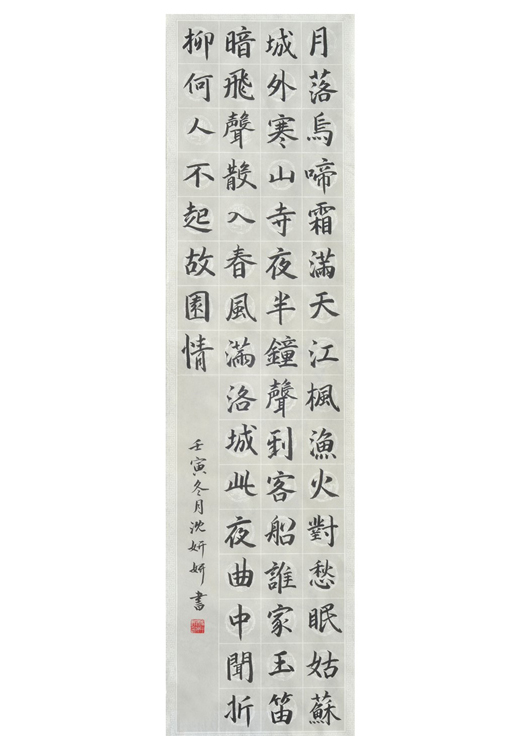 月落烏啼霜滿天江楓漁火對愁眠姑蘇
城外寒山寺夜半鐘聲到客船誰家玉笛
暗飛聲散入春風滿洛城此夜曲中聞折
柳何人不起故園情
壬寅冬月沈妍妍書